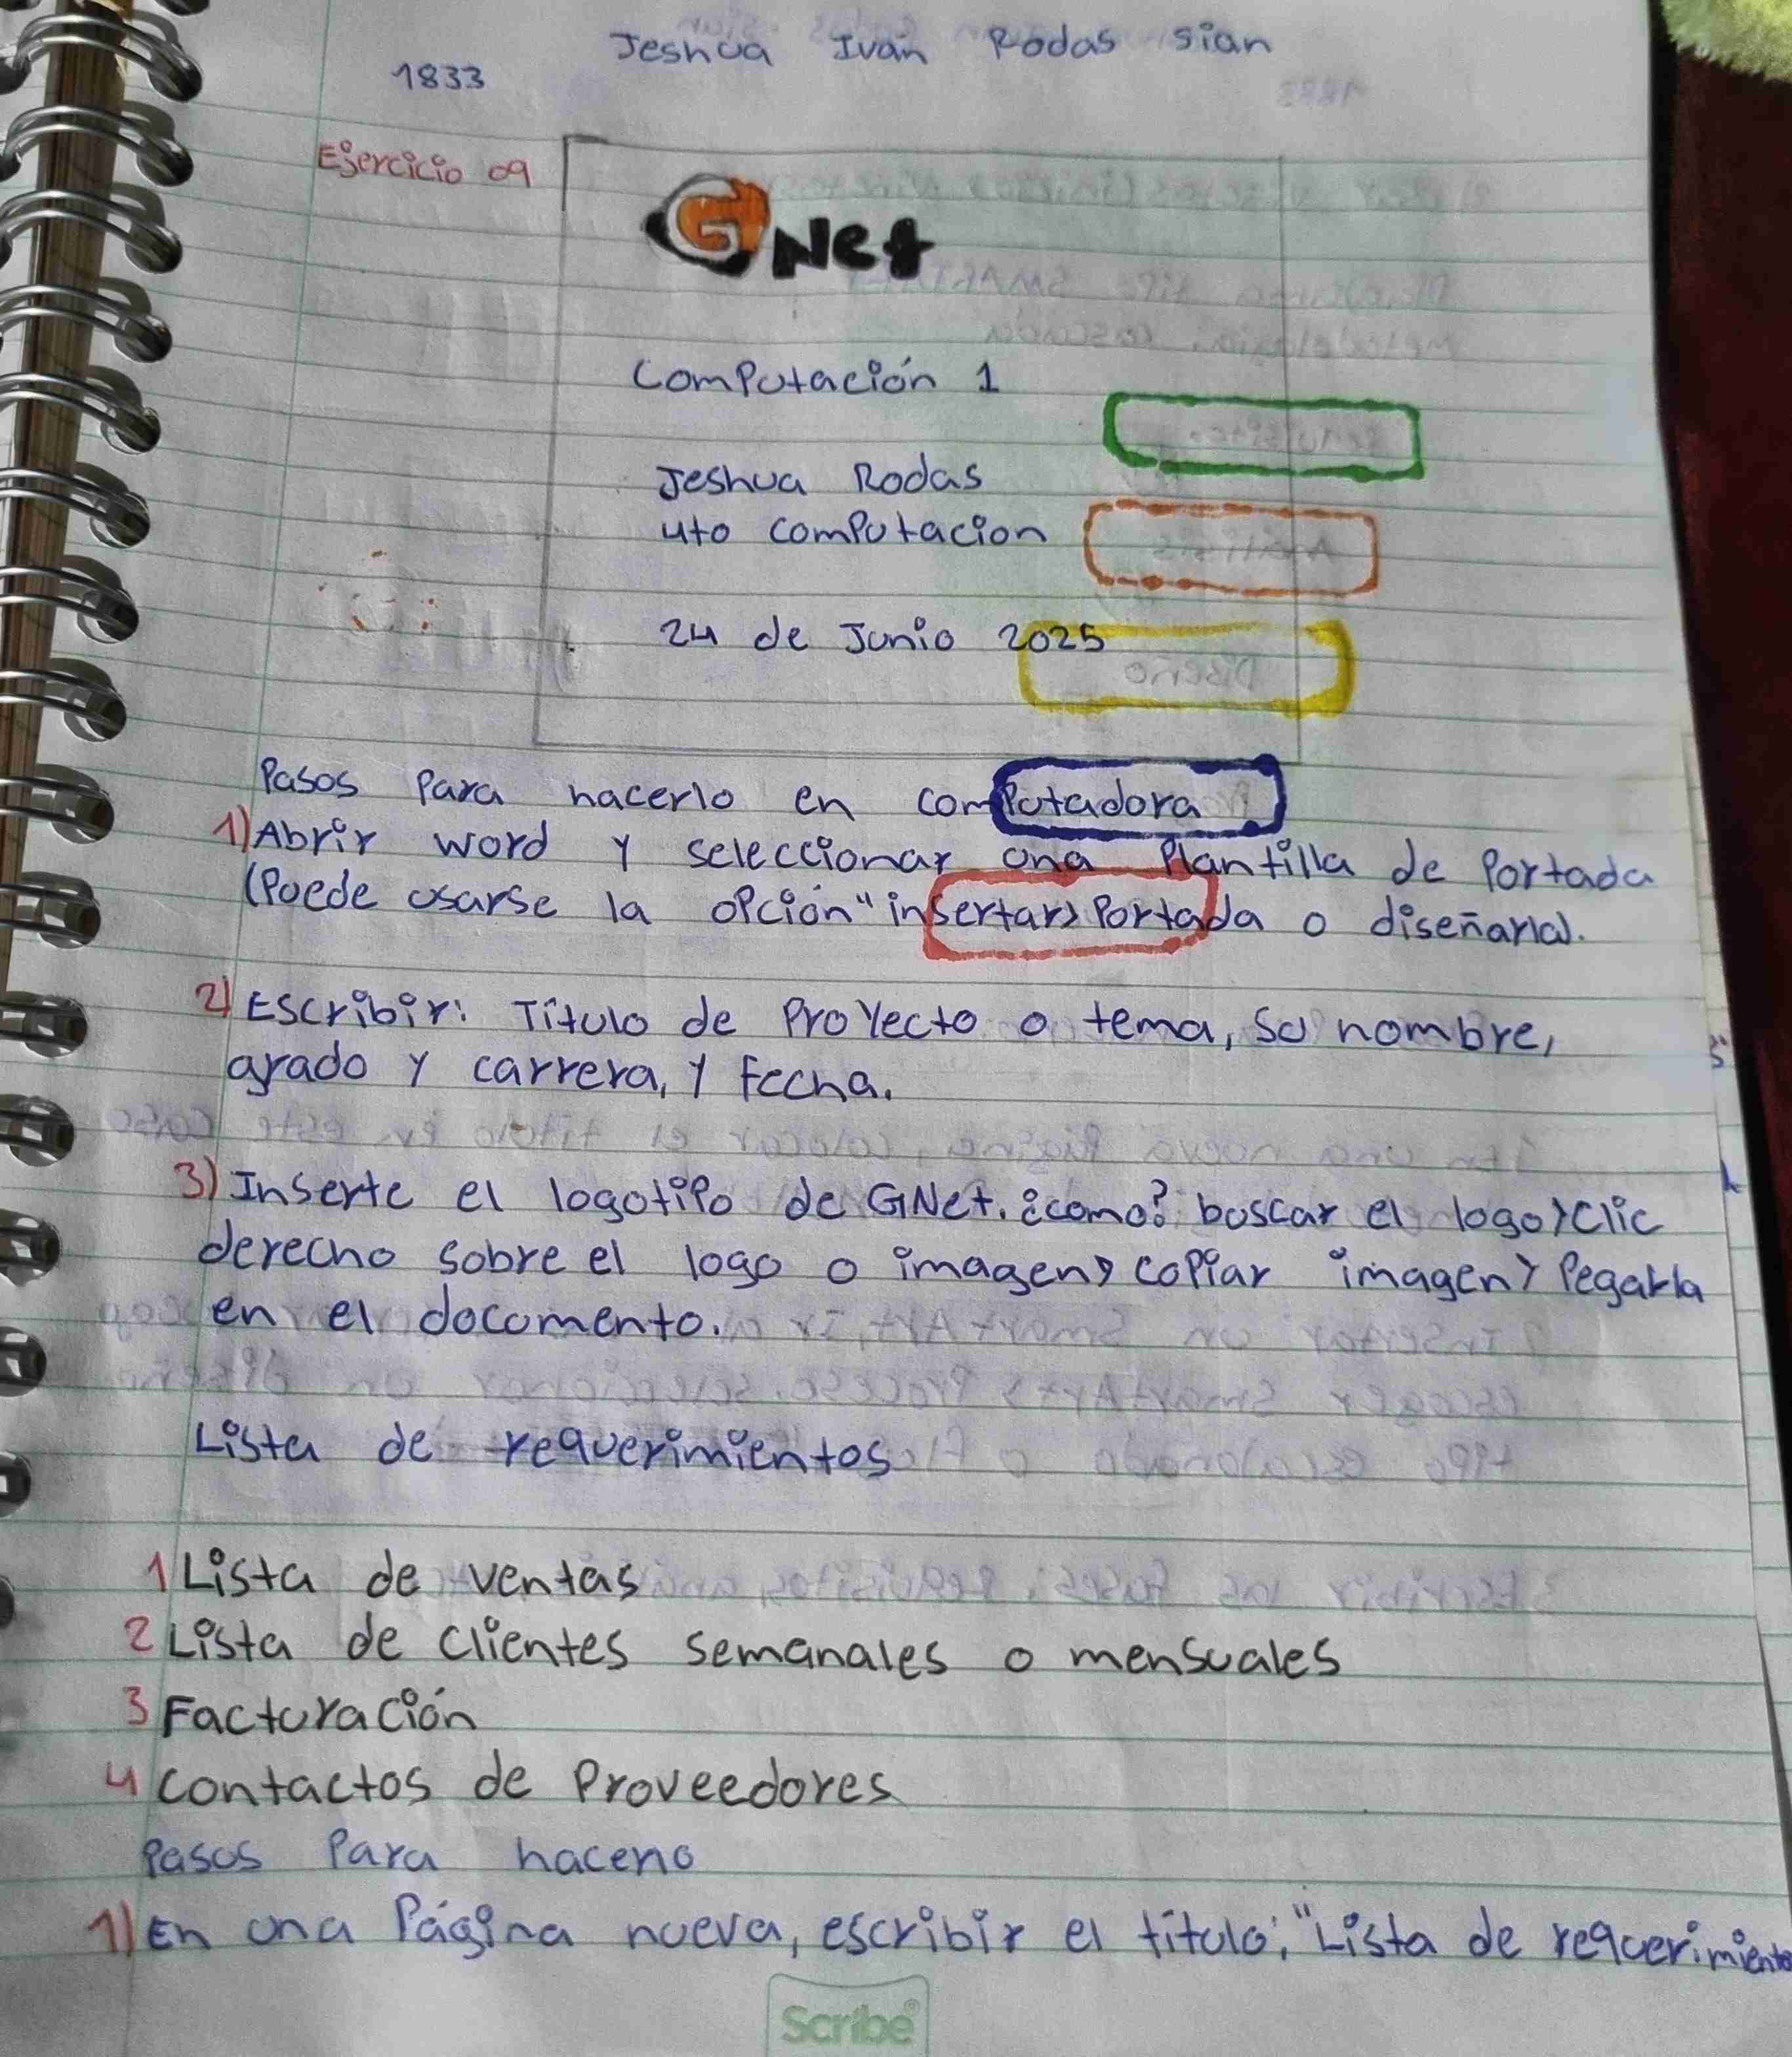 Jeshua Iván Rodas Sian
1833
Ejercicio 09
GNet
Computación 1
Jeshua Rodas
4to computacion
24 de Junio 2025
Pasos Para hacerlo en computadora
1) Abrir word y seleccionar una Plantilla de Portada
(Puede usarse la opción "insertar> Portada o diseñarla).
2) Escribir: Título de Proyecto o tema, su nombre,
grado y carrera, y fecha.
3) Inserte el logotipo de GNet. ¿como? buscar el logo>clic
derecho sobre el logo o imagen> copiar imagen> Pegarla
en el documento.
Lista de requerimientos
1 Lista de ventas
2 Lista de clientes semanales o mensuales
3 Facturación
4 contactos de Proveedores
Pasos Para hacerlo
1) En una Página nueva, escribir el titulo: "Lista de requerimiento
Scribe